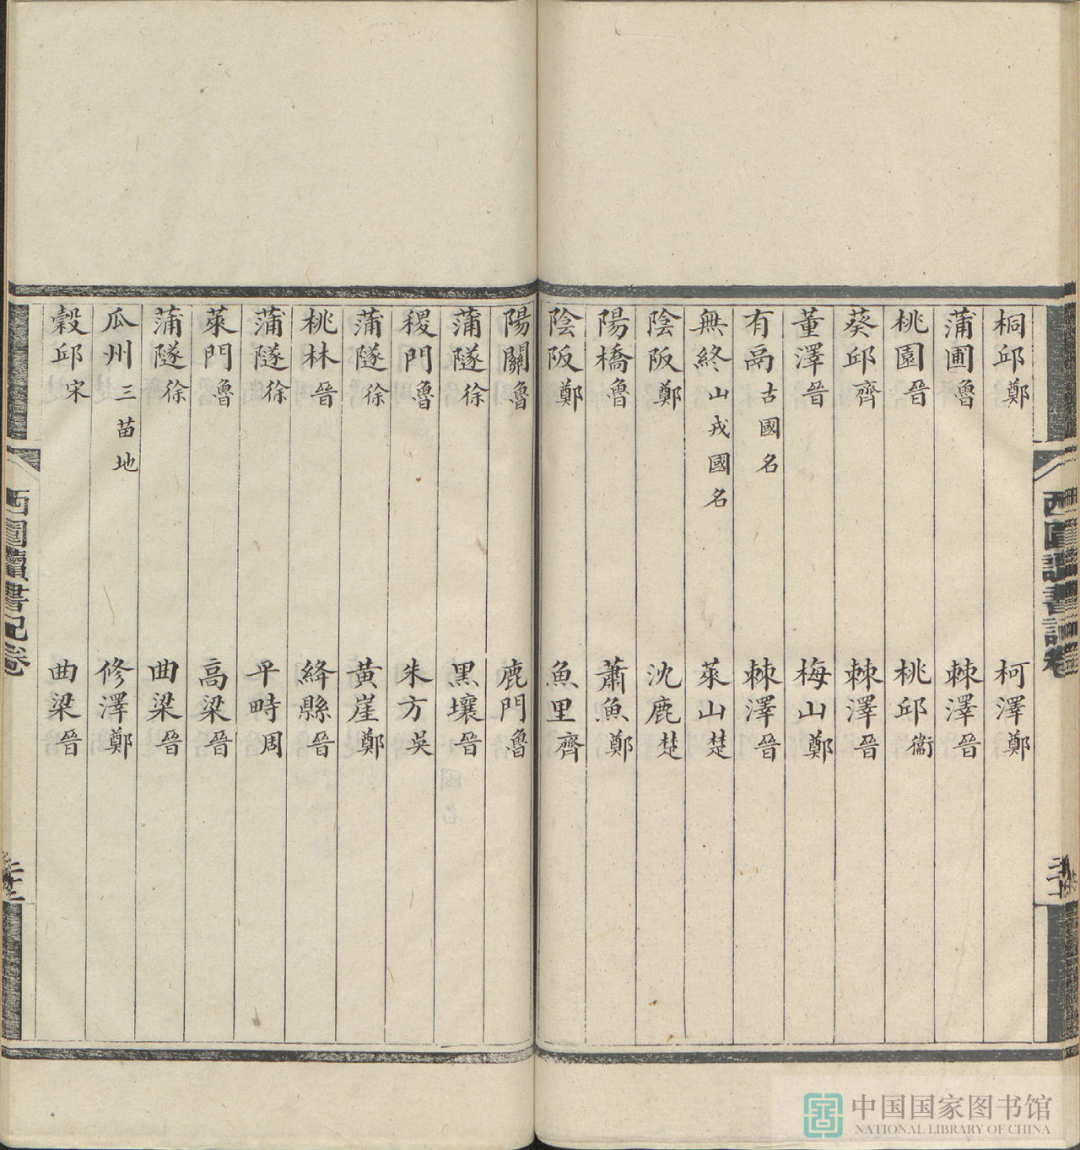 桐邱鄭 柯澤鄭
蒲圃魯 棘澤晉
桃園晉 桃邱衞
葵邱齊 棘澤晉
董澤晉 梅山鄭
有鬲古國名 棘澤晉
無終山戎國名 萊山楚
陰阪鄭 沈鹿楚
陽橋魯 蕭魚鄭
陰阪鄭 魚里齊
陽關魯 鹿門魯
蒲隧徐 黑壤晉
稷門魯 朱方吳
蒲隧徐 黃崖鄭
桃林晉 絳縣晉
蒲隧徐 平畤周
萊門魯 高梁晉
蒲隧徐 曲梁晉
瓜州三苗地 修澤鄭
穀邱宋 曲梁晉
西圃讀書記卷
西圃讀書記卷
中国国家图书馆
NATIONAL LIBRARY OF CHINA